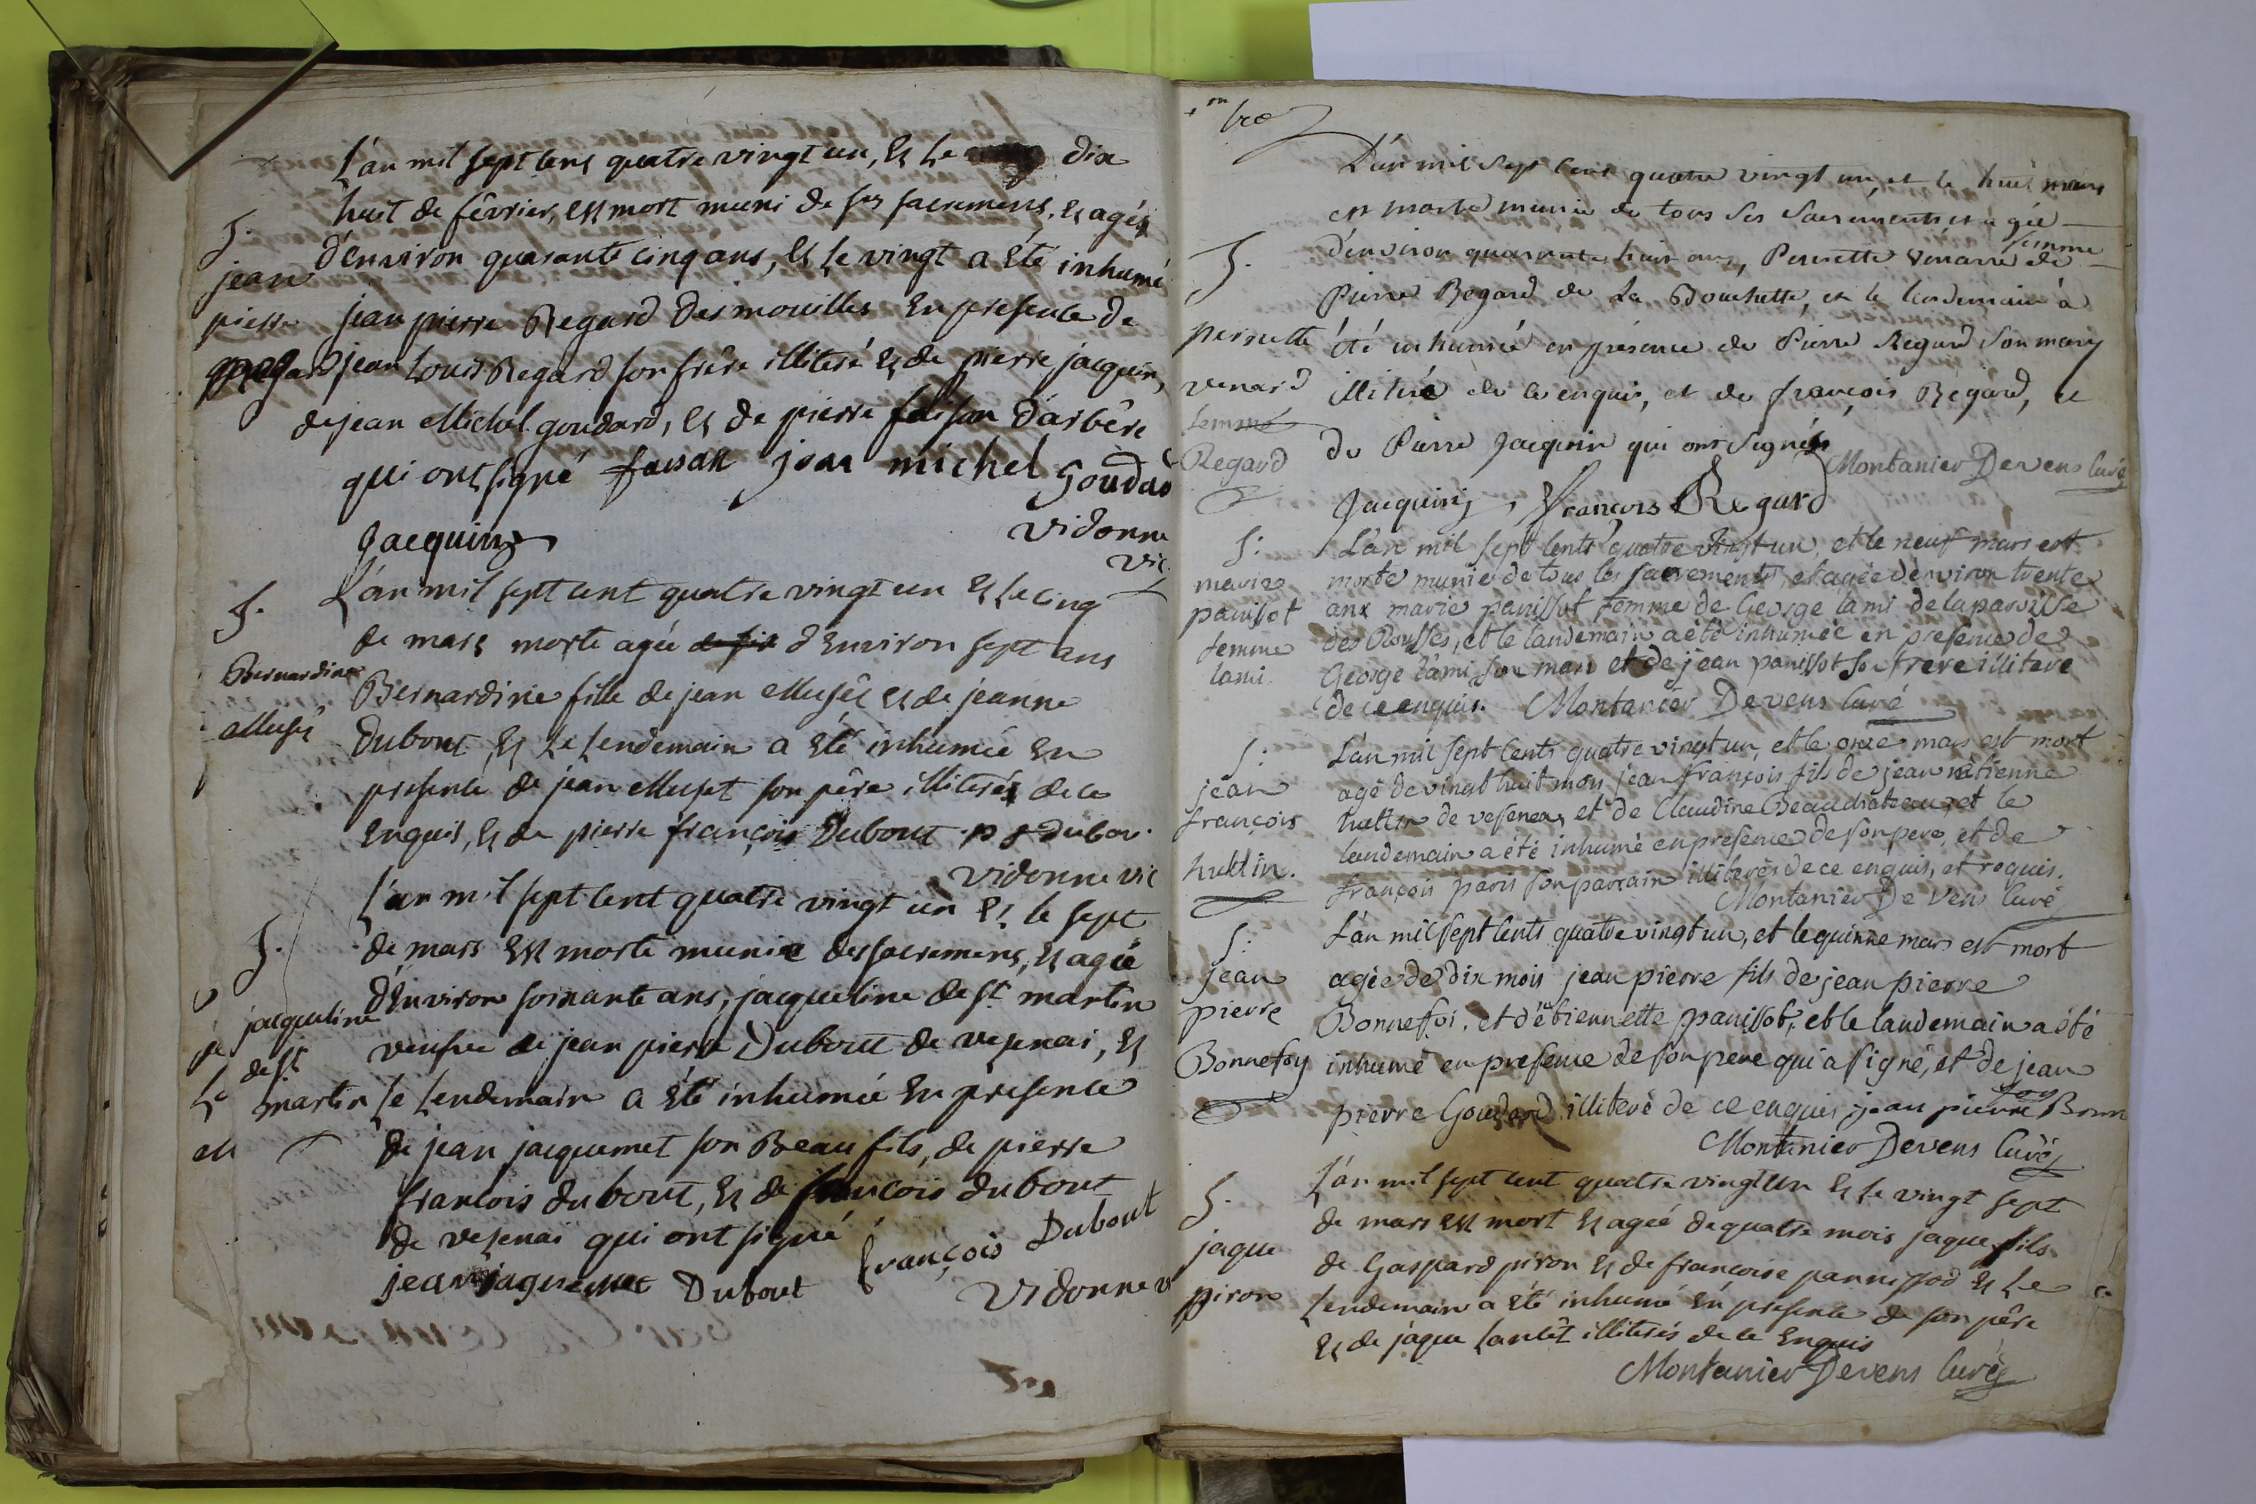 L'an mil sept cens quatre vingt un, et le dix
huit de février, est mort muni de ses sacremens, et agéé
d'environ quarante cinq ans, et le vingt a été inhumé
jean pierre Regard des mouilles en presence de
jean Louis Regard son frére illiteré et de pierre jacquin,
de jean Michel goudard, et de pierre faisan d'arbére
qui ont signé faisan jean michel Goudard
Jacquin
vidonne
vic.
S.
jean
pierre
Regard
L'an mil sept cent quatre vingt un et le cinq
de mars morte agée d'environ sept ans
Bernardine fille de jean Musêt et de jeanne
Dubout, et le lendemain a été inhumée en
presence de jean Muset son pêre illiteré de ce
enquis, et de pierre françois Dubout . p f dubou .
vidonne vic
S.
Bernardine
Musêt
L'an mil sept cent quatre vingt un et le sept
de mars est morte munie des sacremens, et agée
d'Environ soixante ans, jacqueline de St martin
veufve de jean pierre Dubout de vesenai, et
le lendemain a été inhumée en presence
de jean jacquemet son Beau fils, de pierre
francois dubout, et de francois dubout
de vesenai qui ont signé
jean jaquemet Dubout françois Dubout
vidonne v
S.
jacqueline
de St
martin
L'an mil sept cent quatre vingt un, et le huit mars
est morte munie de tous ses sacrements, et agée
d'environ quarante huit ans, Pernette venard femme de
Pierre Regard de La Bouchette, et le lendemain à
été inhumée en présence de Pierre Regard son mary
illitéré de ce enquis, et de françois Régard, et
de Pierre Jacquin qui ont signés
Montanier Devens Curé
Jacquin , François Regard
S.
pernette
venard
femme
Regard
L'an mil sept cents quatre vingt un, et le neuf mars est
morte munie de tous les sacrements, et agée d'environ trente
anx marie panissot femme de George Lami de la paroisse
des Rousses, et le landemain a été inhumée en presence de
George Lami son mari et de jean panissot son frere illiteré
de ce enquis. Montanier Devens Curé
S:
marie
panissot
femme
lami.
L'an mil sept cents quatre vingt un, et le onze mars est mort
agé de vingt huit mois jean françois fils de jean etienne
huttin de vesenex, et de Claudine Beauchateau, et le
landemain a été inhumé en presence de son pere, et de
françois paris son parrain illiterés de ce enquis, et requis.
Montanier De vens Curé
S:
jean
françois
huttin.
L'an mil sept cents quatre vingt un, et le quinze mars est mort
agée de dix mois jean pierre fils de jean pierre
Bonneffoi, et d'etiennette panissot, et le landemain a été
inhumé en presence de son pere qui a signé, et de jean
pierre Goudard illiteré de ce enquis jean pierre Bonn
foy
Montanier Devens Curé
S:
jean
pierre
Bonnefoy
L'an mil sept cent quatre vingt un et le vingt sept
de mars est mort et agéé de quatre mois jaque fils
de Gaspard piron et de francoise pannissod et le
lendemain a été inhumé en presence de son pêre
et de jaque Lantêt illiterés de ce enquis
Montanier Devens Curé
S.
jaque
piron